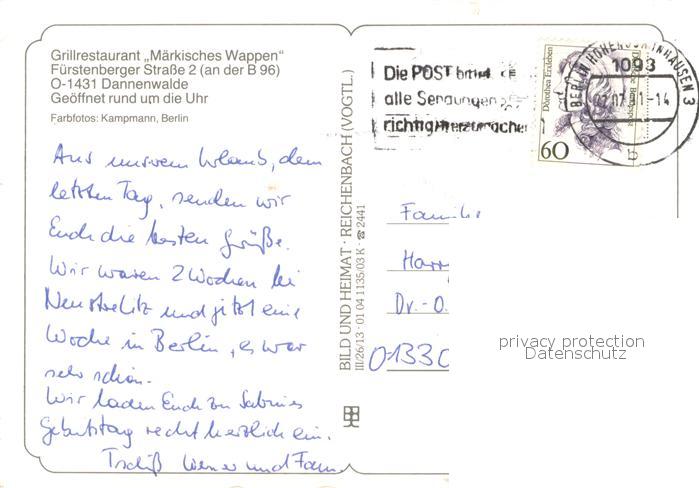 Grillrestaurant „Märkisches Wappen"
Fürstenberger Straße 2 (an der B 96)
O-1431 Dannenwalde
Geöffnet rund um die Uhr
Farbfotos: Kampmann, Berlin
Aus unserem Urlaub, dem
letzten Tag, senden wir
Euch die besten Grüße.
Wir waren 2 Wochen bei
Neustrelitz und jetzt eine
Woche in Berlin, es war
sehr schön.
Wir laden Euch zu Sabines
Geburtstag recht herzlich ein.
Tschüß Werner und Fam.
BILD UND HEIMAT · REICHENBACH (VOGTL.)
III/26/13 · 01 04 1135/03 K · ☎ 2441
Die POST bittet
alle Sendungen
richtig
Dorothea Erxleben
60
BERLIN HOHENSCHÖNHAUSEN 3
1093
-14
b
Familie
Harr
Dr.-O.
O-1330
privacy protection
Datenschutz